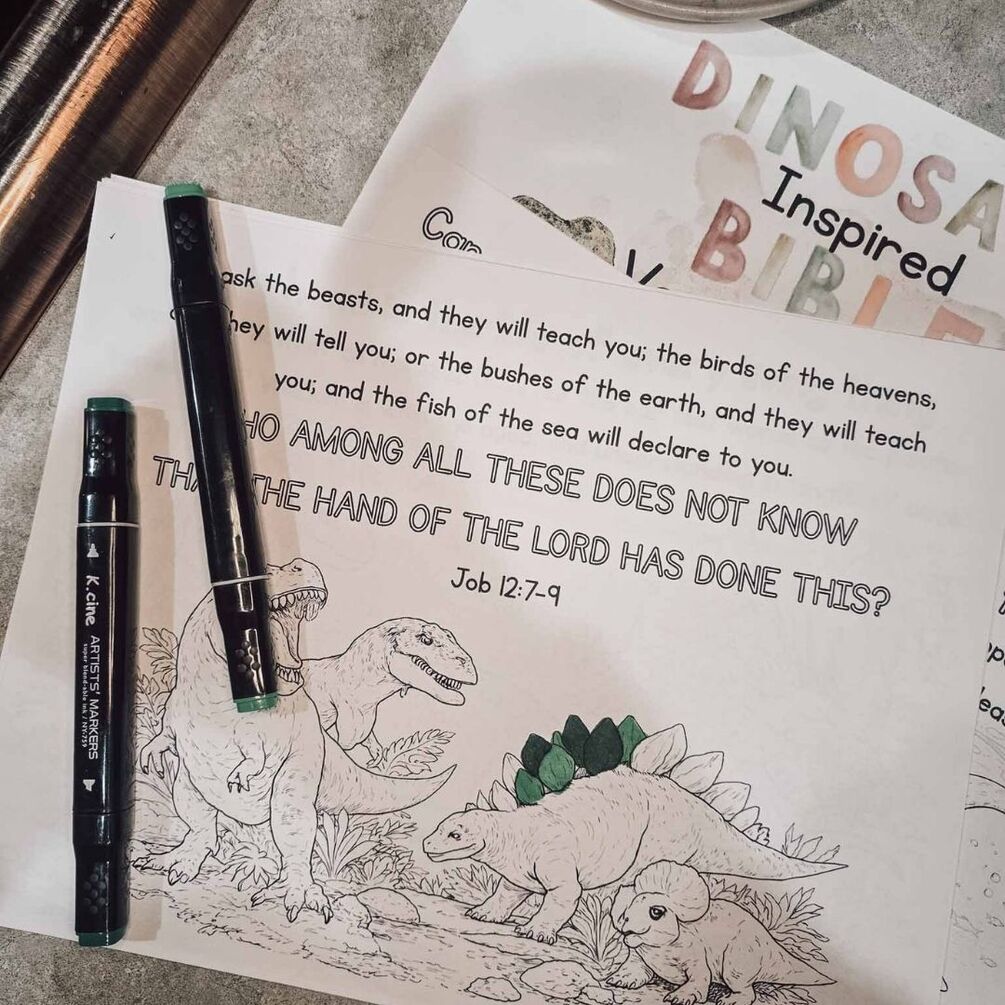 DINOSA
Inspired
BIBLE
Can
ask the beasts, and they will teach you; the birds of the heavens,
they will tell you; or the bushes of the earth, and they will teach
you; and the fish of the sea will declare to you.
HO AMONG ALL THESE DOES NOT KNOW
THA THE HAND OF THE LORD HAS DONE THIS?
Job 12:7-9
K.cine ARTISTS' MARKERS
super blend-able ink / NY-759